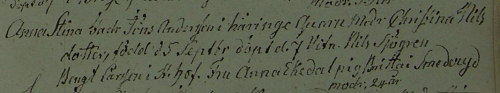 Anna Stina fadr Jöns Andersen i häringe Quarn Modr Christina Nils
dotter, född 25 Septbr döpt d. 7 Vita. Nils Sjögren
Bengt Larsen i K. hof. Fru Anna Ekedal pig Britta i Smederyd
modr. 24 år